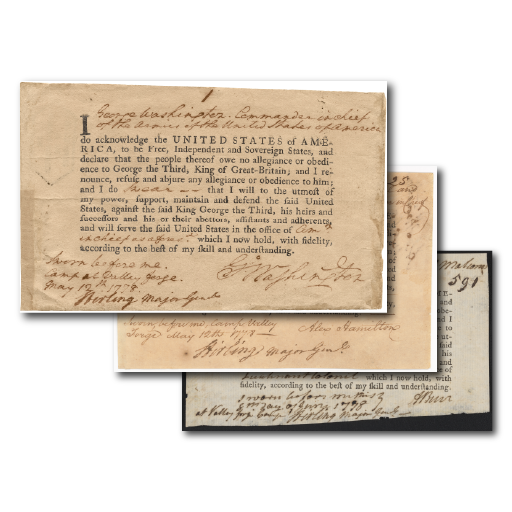 1
I George Washington Commander in chief
of the Armies of the United States of America
do acknowledge the UNITED STATES of AME-
RICA, to be Free, Independent and Sovereign States, and
declare that the people thereof owe no allegiance or obedi-
ence to George the Third, King of Great-Britain; and I re-
nounce, refuse and abjure any allegiance or obedience to him;
and I do swear that I will to the utmost of
my power, support, maintain and defend the said United
States, against the said King George the Third, his heirs and
successors and his or their abettors, assistants and adherents,
and will serve the said United States in the office of Com
in chief as aforesd. which I now hold, with fidelity,
according to the best of my skill and understanding.
Sworn before me
Camp at Valley forge
May 12th 1778
Stirling Major Genl
GWashington
25
and
Sworn before me, Camp Valley
Forge May 12th 1778
Alex Hamilton
Stirling, Major Genl.
Malcom
591
which I now hold, with
fidelity, according to the best of my skill and understanding.
Sworn before me this
1778
at Valley forge Camp Stirling Major Genl
ABurr